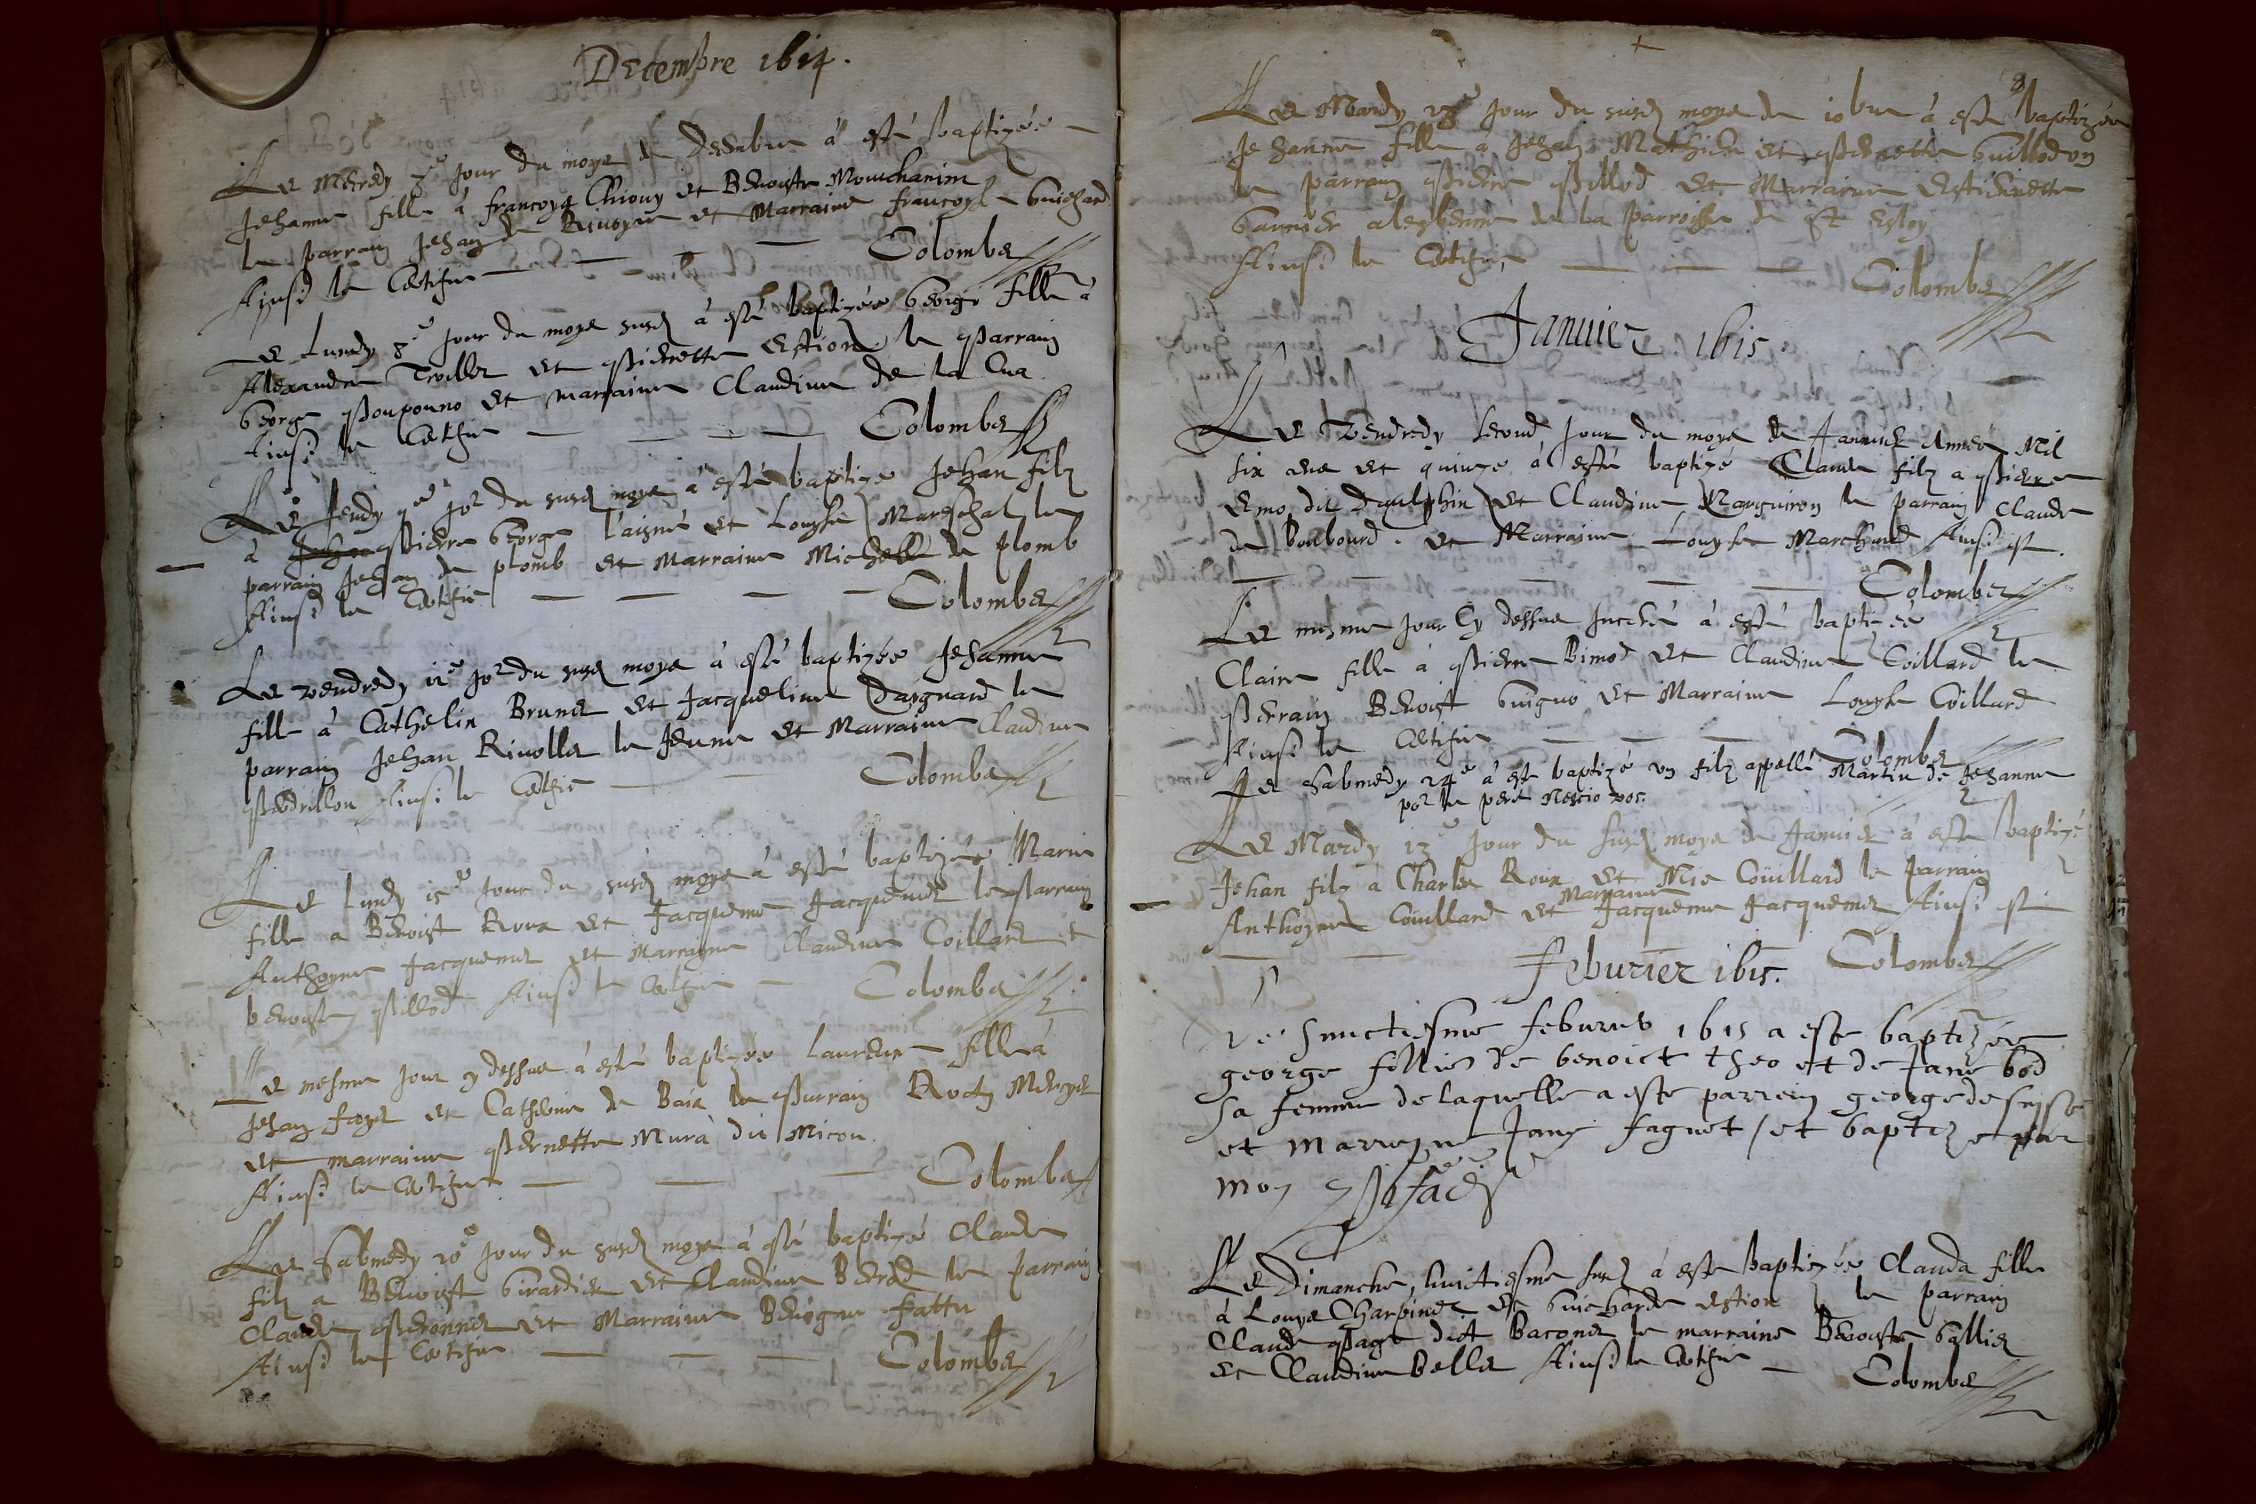 Decembre 1614.
Le Mecredy 3e jour du moys de Decebre à esté baptizée
Jehanne fille à francoys Chiouy et Benoiste Mouchanin
le parrain Jehan de Rivoyre et Marraine francoyse Guichard
Ainsi le Certifie Colombet
Le Lundy 8e jour du moys susd à esté baptizée George fille à
Alexandre Trollet et Pierrette Estion le Parrain
George Poupouno et marraine Claudine de la Cua
Ainsi le Certifie Colombet
Le Jeudy jor du susd moys à esté baptizé Jehan filz
à Pierre George l'aisné et Louyse Mareschal le
parrain Jehan de plomb et Marraine Michelle de plomb
Ainsi le Certifie Colombet
Le vendredy 12e jor du susd moys à esté baptizée Jehanne
fille à Cathelin Brunet et Jacqueline Daignard le
parrain Jehan Rivollet le Jeune et Marraine Claudine
Perdrillon Ainsi le Certifie Colombet
Le Lundy 15e Jour du susd moys à esté baptizée Marie
fille a Benoist Roux et Jacqueme Jacquemet le Parrain
Anthoyne Jacquemet et Marrayne Claudine Coillard et
benoiste Pillod Ainsi le Certifie Colombet
Le mesme Jour cy dessus à esté baptizée Laurence fille à
Jehan fayet et Catherine de Baix le Parrain
et marraine Pernette Mura du Micou
Ainsi le Certifie Colombet
Le Sabmedy 20e Jour du susd moys à esté baptizé Claude
filz a Benoist Girardier et Claudine Berod le parrain
Claude Peronnet et Marraine Benoyne fattu
Ainsi le Certifie Colombet
Le Mardy 23e Jour du susd moys de 10bre à esté baptizée
Jehanne fille à Jehan Mathieu et Pierrette Guillodon
le parrain Pierre Pillod et Marraine Estiennette
Garnier de la parroisse de St
Ainsi le Certifie Colombet
Januier 1615
Le Vendredy Second Jour du moys de Januier Annee Mil
six cens et quinze à esté baptizé Claude filz a Pierre
Emo dit Daulphin et Claudine Marguiron le parrain Claude
de Boubourd et Marraine Louyse Marchand Ainsi est.
Colombet
Le mesme jour Cy dessus à esté baptizée
Claire fille à Pierre Bimod et Claudine Coillard le
Perrain Benoist Guigno et Marraine Louyse Coillard
Ainsi le Certifie Colombet
Le Sabmedy 24e à esté baptizé un filz appellé Martin de Jehanne
por le pere Nescio vos.
Le Mardy 13e Jour du susd moys de Januier à esté baptizé
Jehan filz à Charles Roux et Mie Coüillard le parrain
Anthoyne Coüillard et Marraine Jacqueme Jacquemet Ainsi est
Colombet
Feburier 1615.
Le huictiesme feburier 1615 a este baptizee
george fillie de benoict theo et de Jane bod
sa femme de laquelle a este parrein george de
et marreyne Jane faguet / et baptize par
moy
Le Dimanche, huictiesme susd à esté baptizée Clauda fille
à Louys Charpinet et Guicharde Estion le parrain
Claude Page dict Baconet le marraine Benoiste Gallier
et Claudine Bellet Ainsi le Certifie Colombet